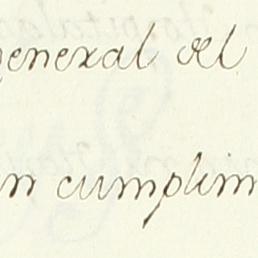 general del
n cumplim